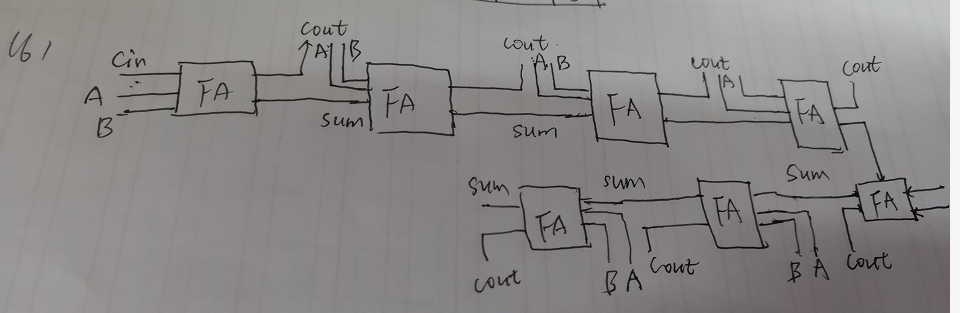 (6)
Cin
A
B
FA
Cout
A B
sum
FA
Cout
A B
sum
FA
Cout
A
FA
Cout
sum
FA
sum
FA
Sum
FA
Cout
B A
Cout
B A
Cout